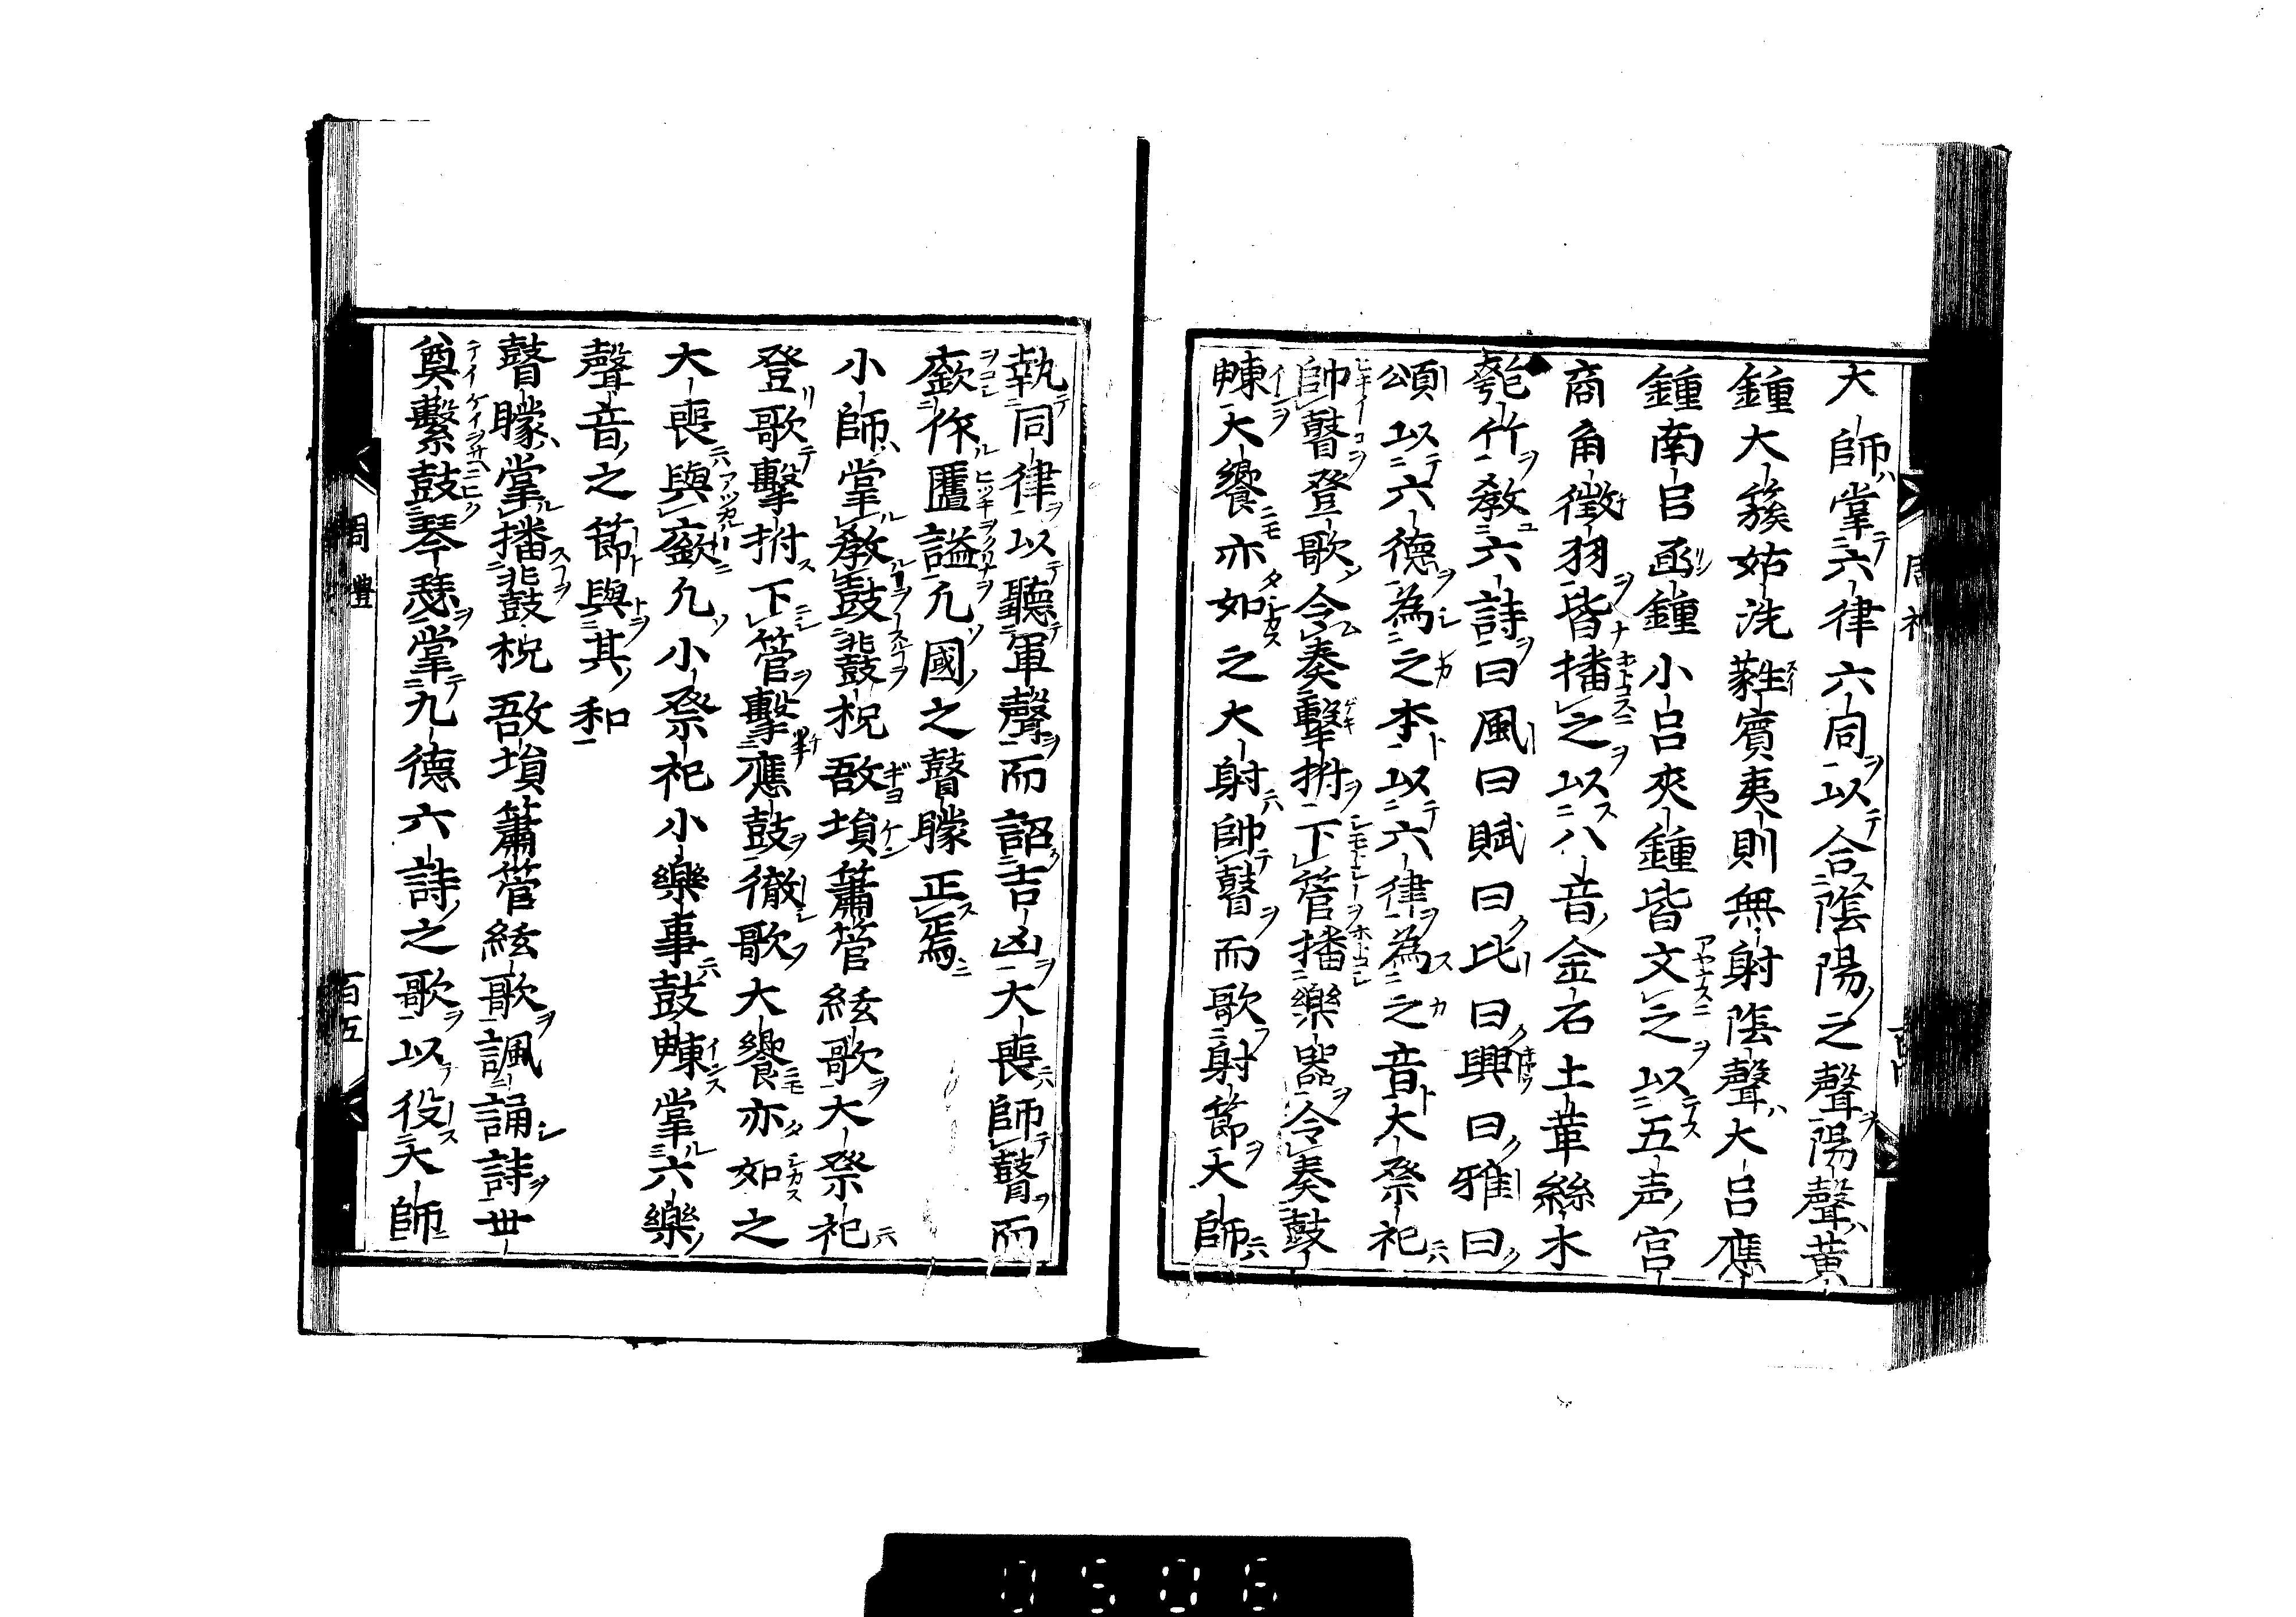 大師掌六律六同以合陰陽之聲陽聲黄
鍾大簇姑洗蕤賓夷則無射陰聲大呂應
鍾南呂函鍾小呂夾鍾皆文之以五声宮
商角徵羽皆播之以八音金石土革絲木
匏竹教六詩曰風曰賦曰比曰興曰雅曰
頌以六德為之本以六律為之音大祭祀
帥瞽登歌令奏擊拊下管播樂器令奏鼓
朄大饗亦如之大射帥瞽而歌射節大師
執同律以聽軍聲而詔吉凶大喪師瞽而
廞作匶謚凡國之瞽矇正焉
小師掌教鼓鼗柷敔塤簫管絃歌大祭祀
登歌擊拊下管擊應鼓徹歌大饗亦如之
大喪與廞凡小祭祀小樂事鼓朄掌六樂
聲音之節與其和
瞽矇掌播鼗柷敔塤簫管絃歌諷誦詩世
奠繫鼓琴瑟掌九德六詩之歌以役大師
周禮
百五
0506